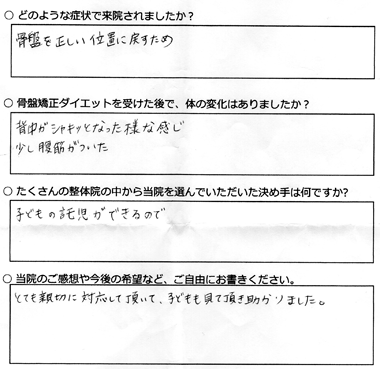 ○ どのような症状で来院されましたか？
骨盤を正しい位置に戻すため
○ 骨盤矯正ダイエットを受けた後で、体の変化はありましたか？
背中がシャキッとなった様な感じ
少し腹筋がついた
○ たくさんの整体院の中から当院を選んでいただいた決め手は何ですか?
子どもの託児ができるので
○ 当院のご感想や今後の希望など、ご自由にお書きください。
とても親切に対応して頂いて、子どもも見て頂き助かりました。